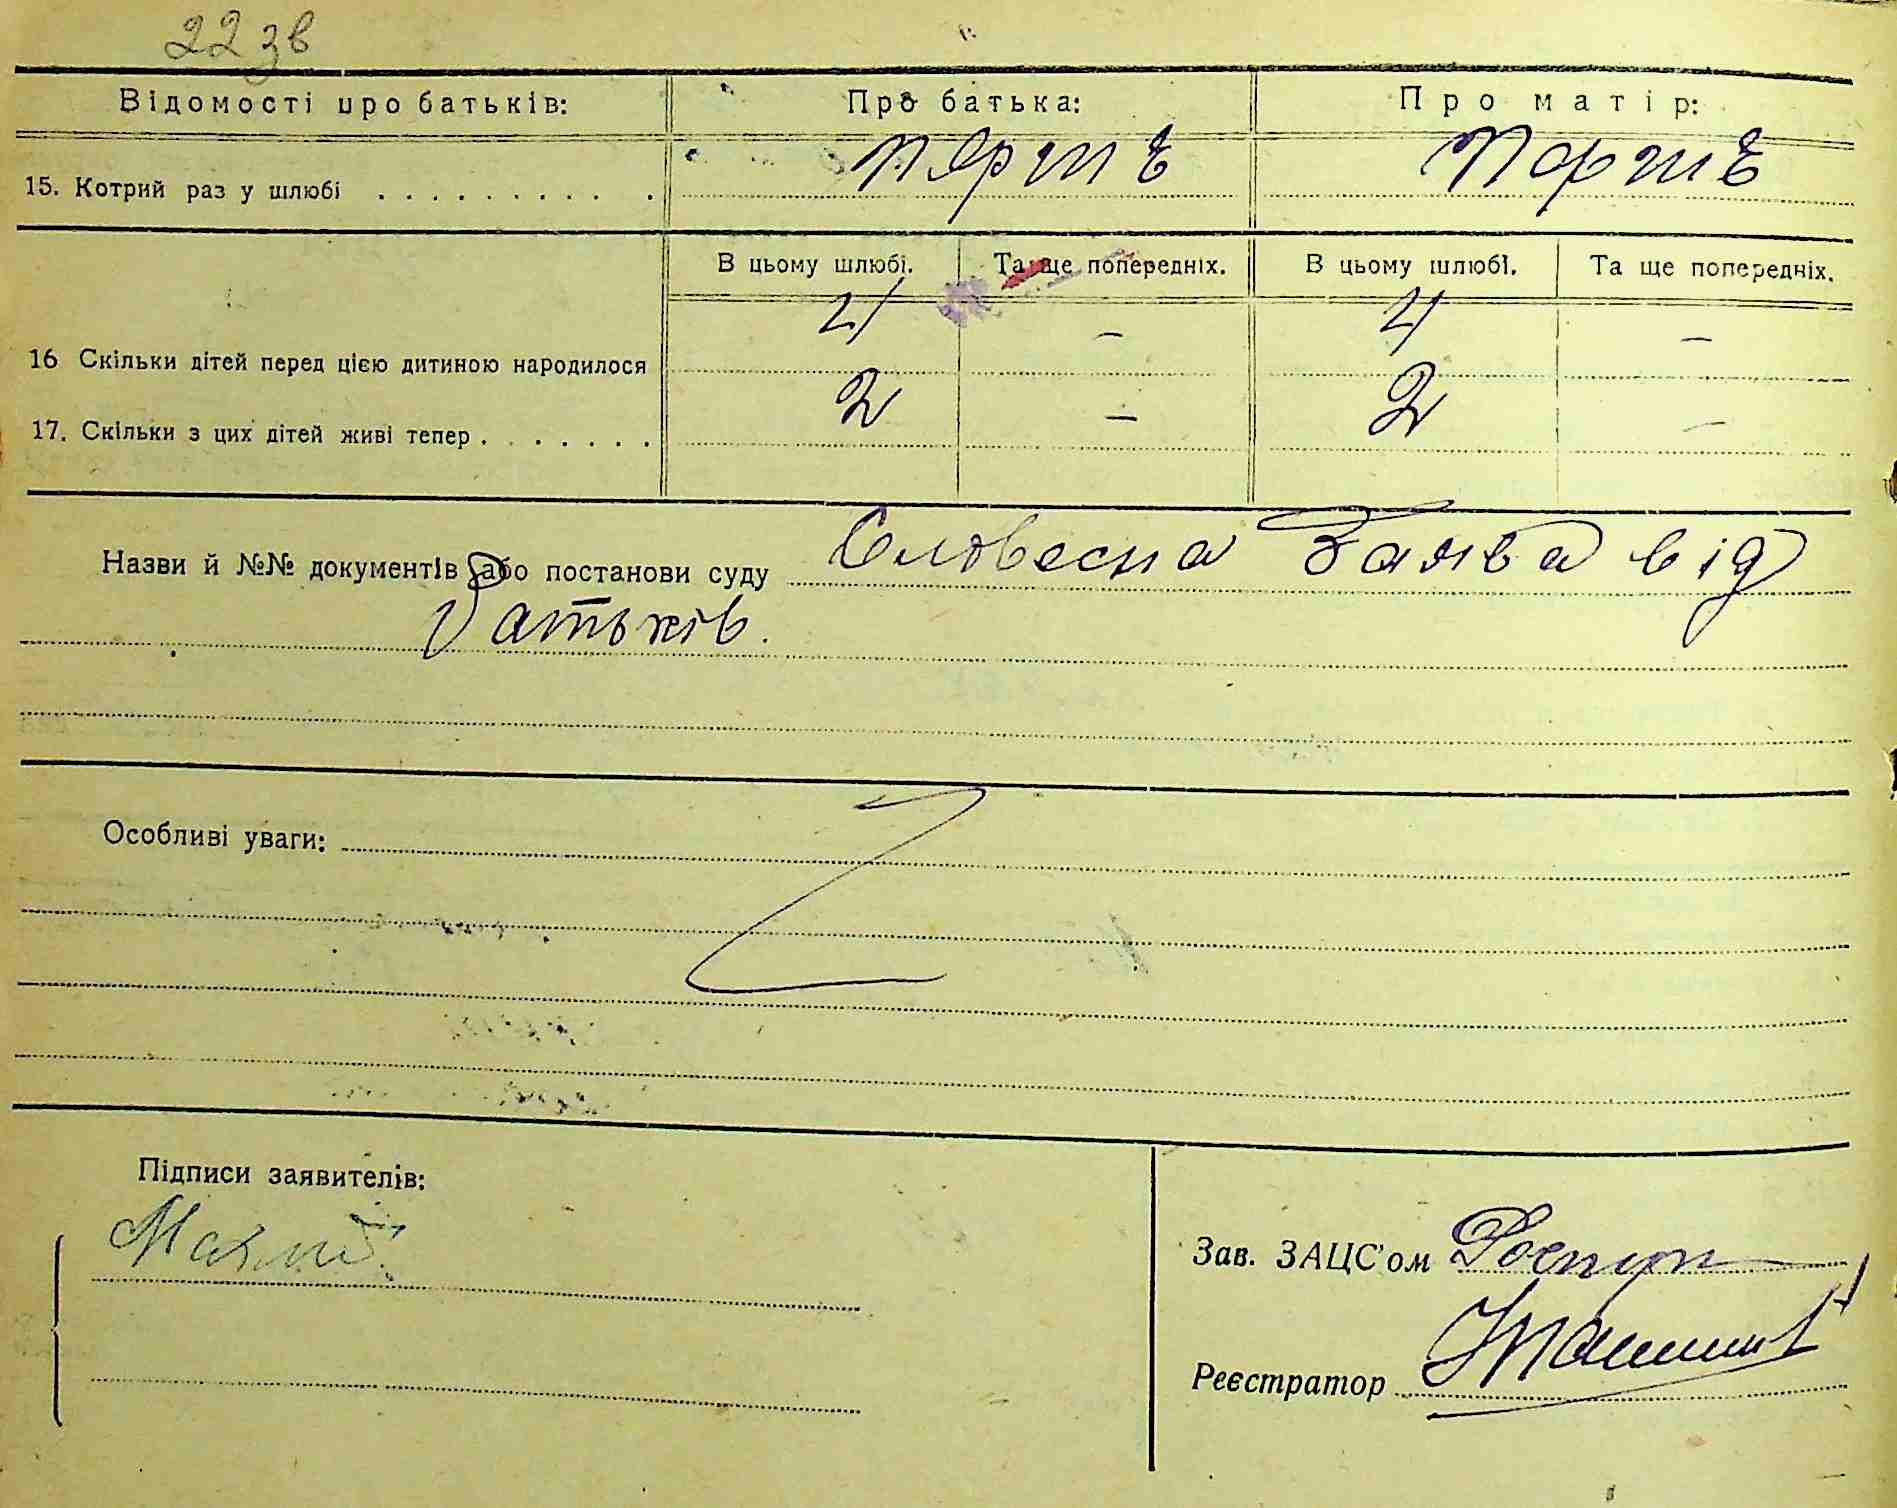 22 зв
Відомості про батьків: Про батька: Про матір:
15. Котрий раз у шлюбі . . . . . . . . . . перше перше
В цьому шлюбі. Та ще попередніх. В цьому шлюбі. Та ще попередніх.
16 Скільки дітей перед цією дитиною народилося 4 – 4 –
17. Скільки з цих дітей живі тепер . . . . . . . 2 – 2 –
Назви й №№ документів або постанови суду Словесна Заява від
батьків.
Особливі уваги:
Підписи заявителів:
Зав. ЗАЦС'ом
Реєстратор